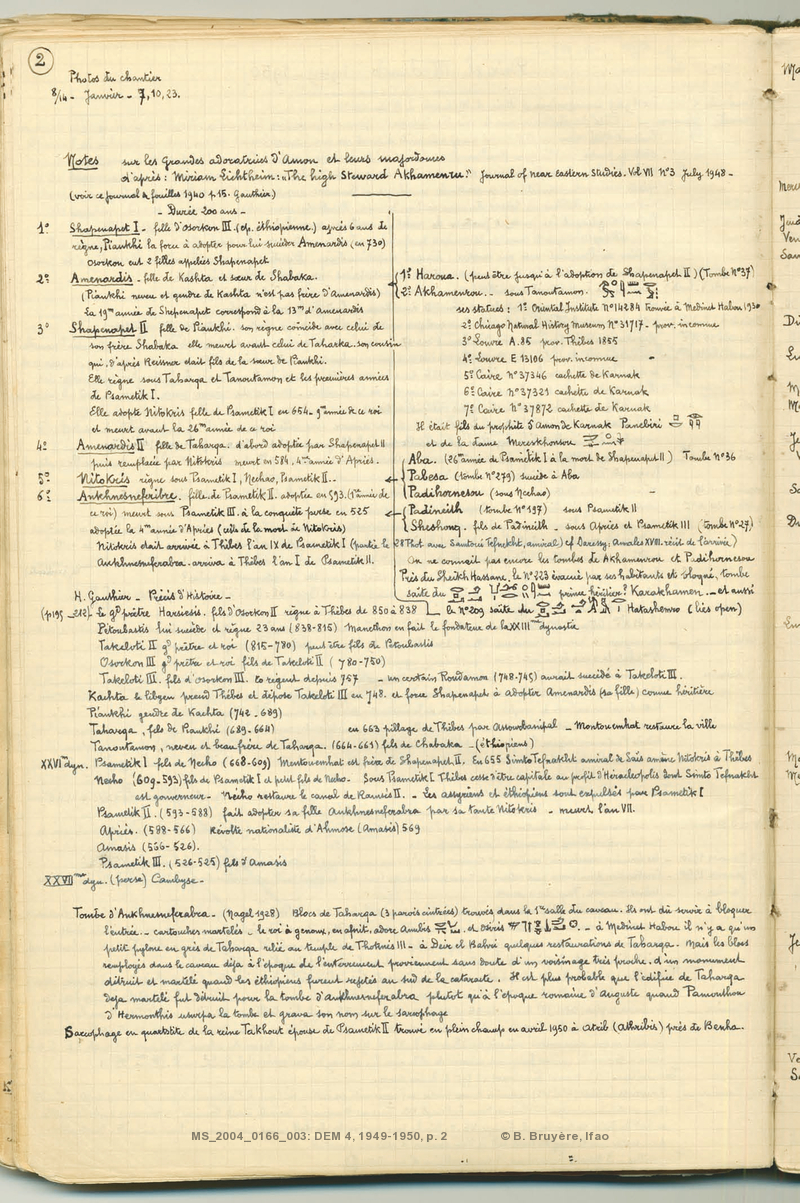 2
Photos du chantier
8/14 - Janvier - 7, 10, 23.
Notes sur les Grandes adoratrices d'Amon et leurs majordomes
d'après : Miriam Lichtheim : "The high Steward Akhamenru." Journal of near Eastern Studies. Vol VII N°3 July 1948 -
(voir ce journal de fouilles 1940 p.15. Gauthier.)
- Durée 200 ans -
1° Shapenapet I - fille d'Osorkon III. (ep. éthiopienne.) après 6 ans de
règne, Piankhi la force à adopter pour lui succéder Amenardis (en 730)
Osorkon eut 2 filles appelées Shapenapet
2° Amenardis - fille de Kashta et sœur de Shabaka.
(Piankhi neveu et gendre de Kashta n'est pas frère d'Amenardis)
La 19me année de Shepenapet correspond à la 13me d'Amenardis
3° Shapenapet II fille de Piankhi. son règne coincide avec celui de
son frère Shabaka elle meurt avant celui de Taharka. son cousin
qui, d'après Reisner était fils de la sœur de Piankhi.
Elle règne sous Taharqa et Tanoutamon et les premières années
de Psametik I.
Elle adopte Nitokris fille de Psametik I en 654. 9me année de ce roi
et meurt avant la 26me année de ce roi
4° Amenardis II fille de Taharqa. d'abord adoptée par Shapenapet II
puis remplacée par Nitokris meurt en 584, 4me année d'Apries.
5° Nitokris règne sous Psametik I, Nechao, Psametik II. -
6° Ankhnesneferibre. fille de Psametik II. adoptée en 593. (1re année de
ce roi) meurt sous Psametik III. à la conquête perse en 525
adoptée la 4me année d'Apries (vid. de la mort de Nitokris)
Nitokris était arrivée à Thèbes l'an IX de Psametik I (partie le
Ankhnesneferabra. arriva à Thèbes l'an I de Psametik II.
1° Haroua. (peut être jusqu'à l'adoption de Shapenapet II) (Tombe N°37)
2° Akhamenrou. - sous Tanoutamon.
ses statues : 1° Oriental Institute N°14284 trouvée à Medinet Habou 1930
2° Chicago Natural History Museum N°31717 - prov. inconnue
3° Louvre A.85 prov. Thèbes 1855
4° Louvre E 13106 prov. inconnue
5° Caire N°37346 cachette de Karnak
6° Caire N°37321 cachette de Karnak
7° Caire N°37872 cachette de Karnak
Il était fils du prophète d'Amon de Karnak Panebiri
et de la dame Mereskhonsou
Aba. (26me année de Psametik I à la mort de Shapenapet II) Tombe N°36
Pabesa (tombe N°279) succède à Aba
Padihornesou (sous Nechao)
Padineith (tombe N°197) sous Psametik II
Sheshonq. fils de Padineith - sous Apries et Psametik III (tombe N°27)
28 Thot avec Samtoui Tefnekht, amiral) cf Daressy : Annales XVIII. récit de l'arrivée)
On ne connait pas encore les tombes de Akhamenrou et Padihornesou
Près du Sheikh Hassane, le N°223 évacué par ses habitants et éloigné, tombe
saite du prince héritier ? Karakhamen. - et aussi
le N°209 saite du Hatashemro (lies open)
H. Gauthier - Précis d'Histoire -
(p195_212) - le gd prêtre Harsiesis. fils d'Osorkon II règne à Thèbes de 850 à 838
Pétoubastis lui succède et règne 23 ans (838-815) Manethon en fait le fondateur de la XXIIIme dynastie
Takeloti II gd prêtre et roi (815-780) peut être fils de Petoubastis
Osorkon III gd prêtre et roi fils de Takeloti II (780-750)
Takeloti III. fils d'Osorkon III. co régent depuis 757 - un certain Roudamon (748-745) aurait succédé à Takeloti III.
Kashta le libyen prend Thèbes et dépose Takeloti III en 748. et force Shapenapet à adopter Amenardis (sa fille) comme héritière
Piankhi gendre de Kachta (742-689)
Taharqa, fils de Piankhi (689-664) en 663 pillage de Thèbes par Assourbanipal - Montouemhat restaure la ville
Tanoutamon, neveu et beau frère de Taharqa. (664-661) fils de Chabaka - (éthiopiens)
XXVIme dyn. Psametik I - fils de Necho (668-609) Mentouemhat est frère de Shapenapet II. En 655 Simto Tefnakht amiral de Saïs amène Nitokris à Thèbes
Necho (609-593) fils de Psametik I et petit fils de Necho. Sous Psametik I Thèbes cesse d'être capitale au profit d'Héracleopolis dont Simto Tefnakht
est gouverneur - Necho restaure le canal de Ramsès II. - Les assyriens et éthiopiens sont expulsés par Psametik I
Psametik II. (593-588) fait adopter sa fille Ankhnesneferabra par sa tante Nitokris - meurt l'an VII.
Apriès. (588-566) Révolte nationaliste d'Ahmose (Amasis) 569
Amasis (566-526).
Psametik III. (526-525) fils d'Amasis
XXVIIme dyn. (perse) Cambyse -
Tombe d'Ankhnesneferabra - (Nagel 1928) Blocs de Taharqa (3 parois cintrées) trouvés dans la 1re salle du caveau. Ils ont dû servir à bloquer
l'entrée. - cartouches martelés - le roi à genoux, en afnit. adore Anubis et Osiris - à Medinet Habou il n'y a qu'un
petit pylone en grès de Taharqa relié au temple de Thotmès III - à Deir el Bahri quelques restaurations de Taharqa. Mais les blocs
remployés dans le caveau déja à l'époque de l'enterrement proviennent sans doute d'un voisinage très proche. d'un monument
détruit et martelé quand les éthiopiens furent rejetés au sud de la cataracte. Il est plus probable que l'édifice de Taharqa
deja martelé fut détruit pour la tombe d'Ankhnesneferabra plutot qu'à l'époque romaine d'Auguste quand Pamonthou
d'Hermonthis usurpa la tombe et grava son nom sur le sarcophage
Sarcophage en quartzite de la reine Takhout épouse de Psametik II trouvé en plein champ en avril 1950 à Atrib (Athribis) près de Benha.
MS_2004_0166_003: DEM 4, 1949-1950, p. 2 © B. Bruyère, Ifao